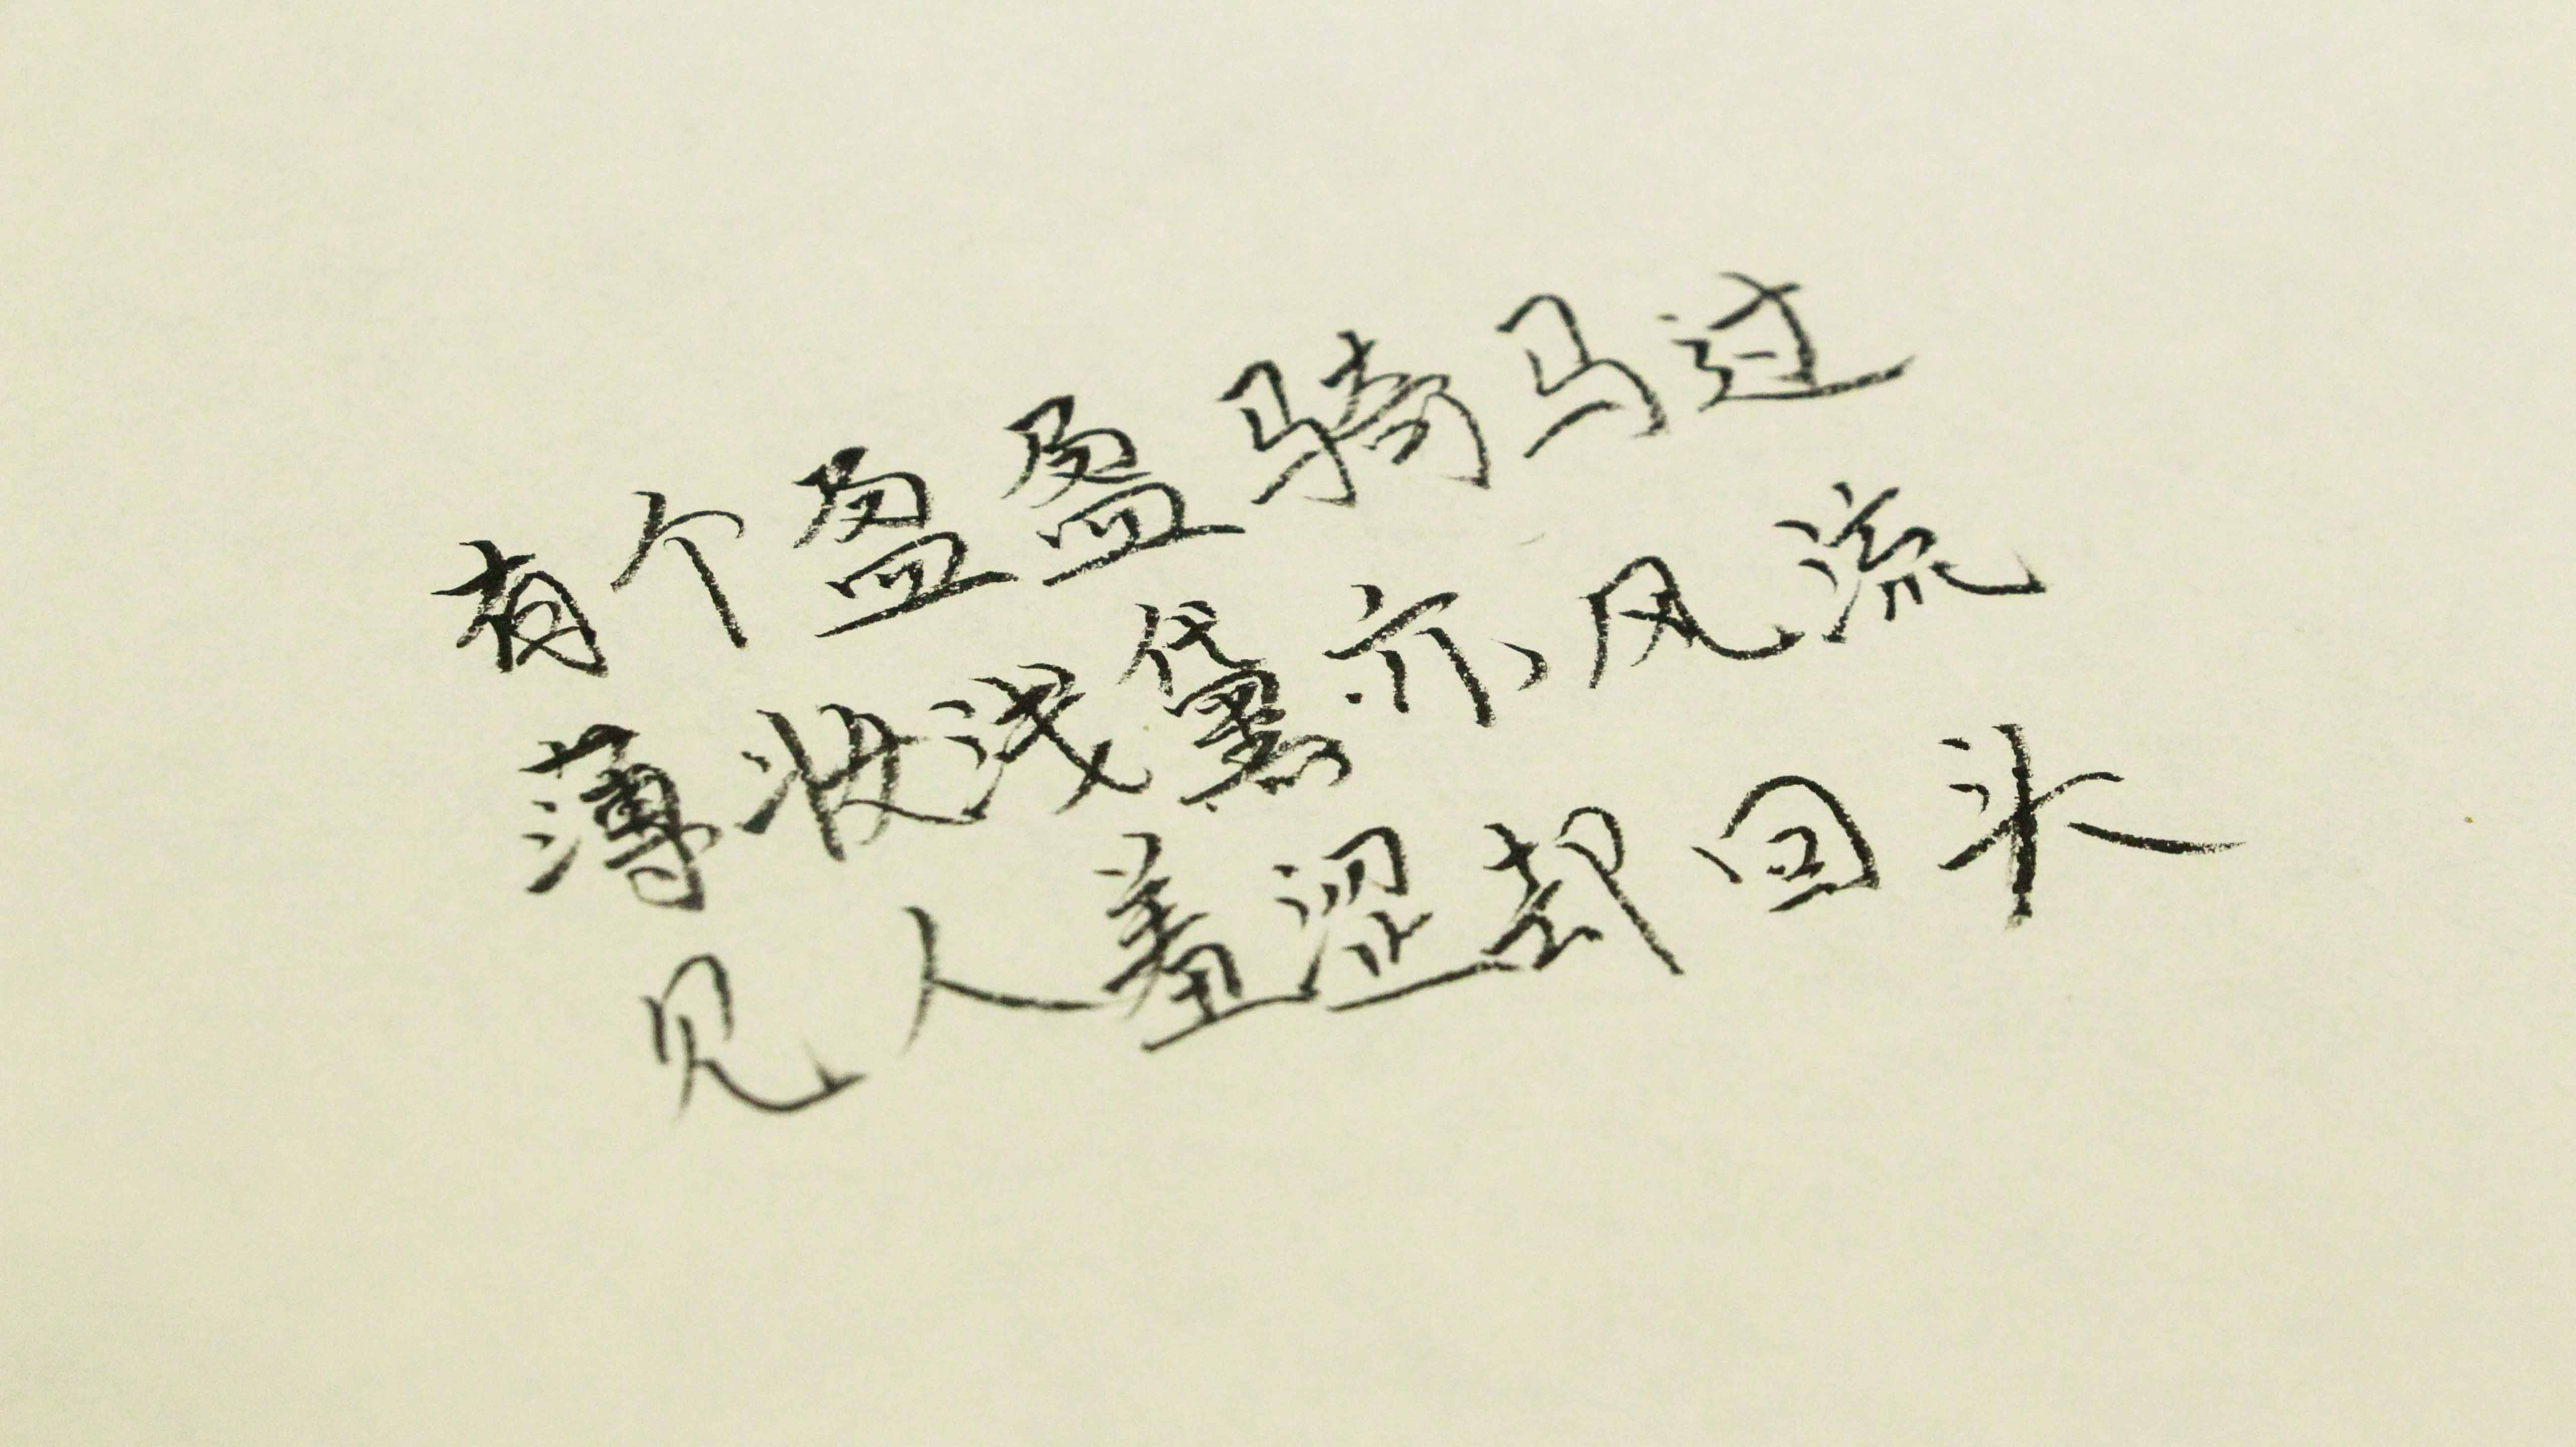 有个盈盈骑马过
薄妆浅黛亦风流
见人羞涩却回头